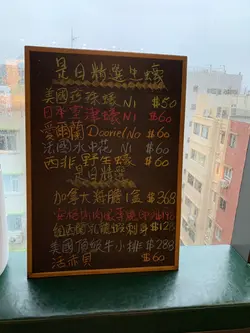 是日精選生蠔
美國珍珠蠔 N1 $50
日本空潔蠔 N1 $60
愛爾蘭 Dooriel No $60
法國水中花 N1 $60
西非野生蠔 $60
是日精選
加拿大海膽1盒 $368
$198
刺身 $128
美國頂級牛小排 $288
活赤貝 $60